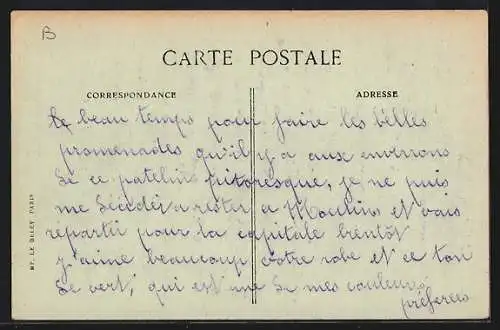 B
CARTE POSTALE
CORRESPONDANCE
ADRESSE
le beau temps pour faire les belles
promenades qu'il y a aux environs
de ce patelin pitoresque, je ne puis
me décider a rester a Moulins et vais
repartir pour la capitale bientôt
j'aime beaucoup votre robe et ce ton
de vert, qui est une de mes couleurs
préférées
LE DELEY PARIS